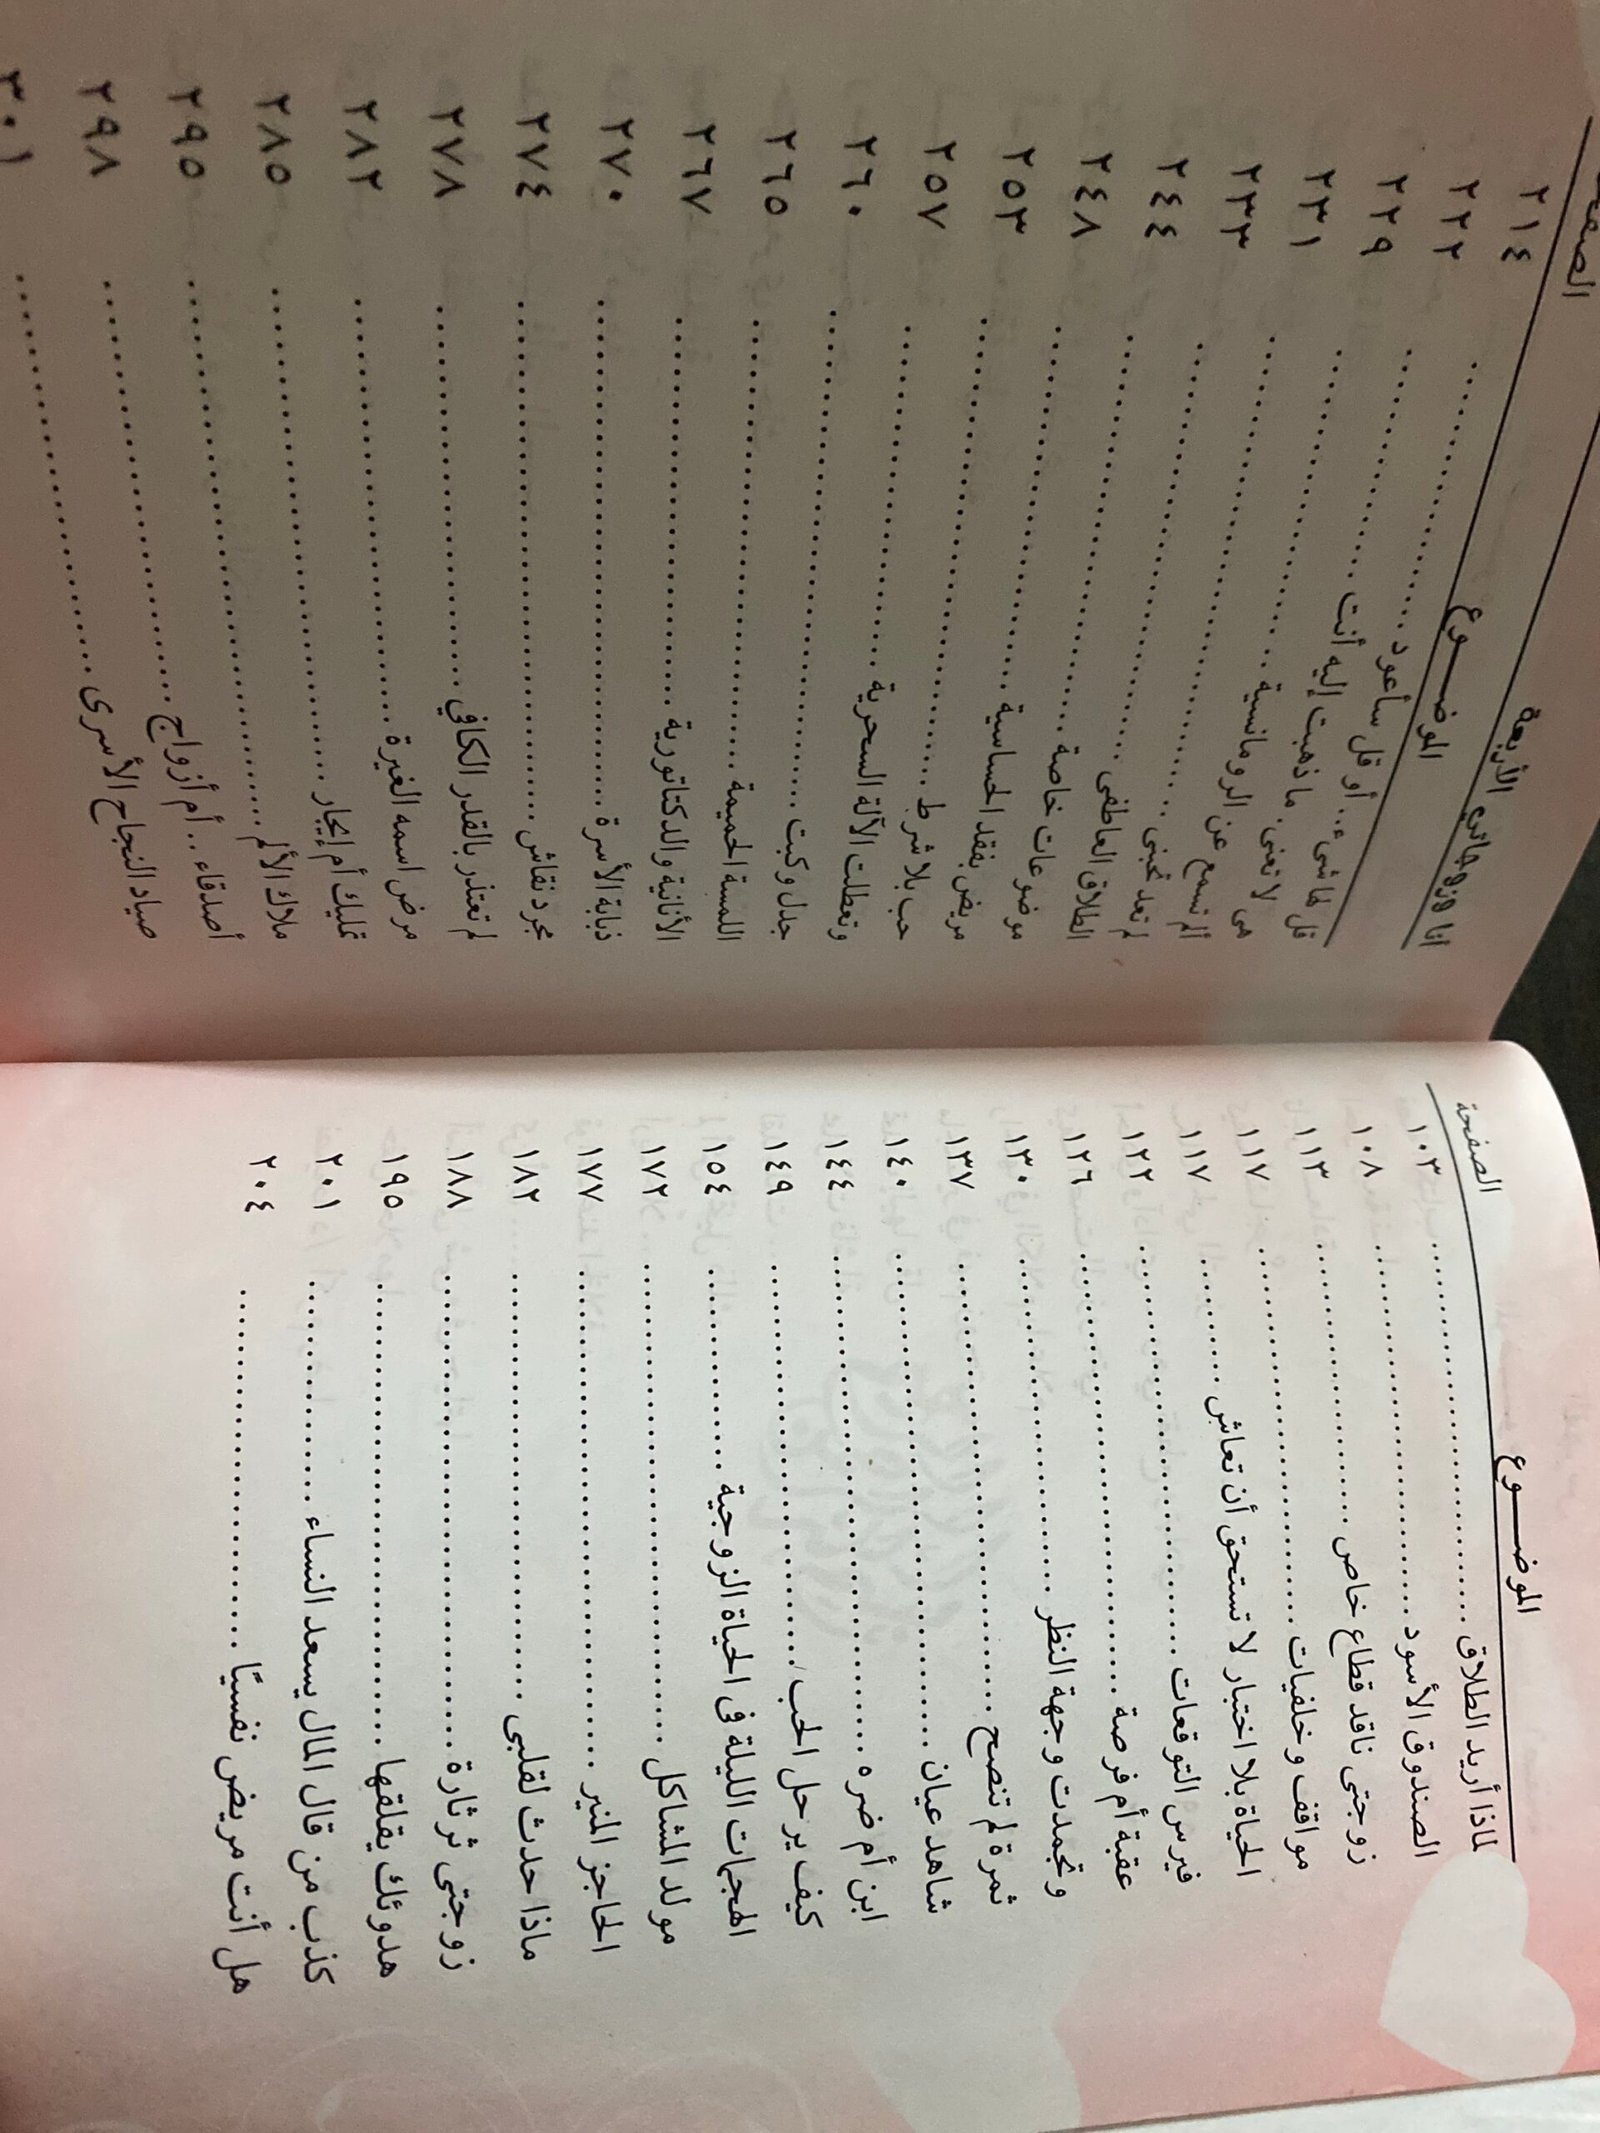 الموضـــوع الصفحة
لماذا أريد الطلاق ........ ١٠٣
الصندوق الأسود ........ ١٠٨
زوجتى ناقد قطاع خاص ........ ١١٣
مواقف وخلفيات ........ ١١٧
الحياة بلا اختبار لا تستحق أن تعاش ........ ١١٧
فيرس التوقعات ........ ١٢٢
عقبة أم فرصة ........ ١٢٦
وتجمدت وجهة النظر ........ ١٣٠
ثمرة لم تنضج ........ ١٣٧
شاهد عيان ........ ١٤٠
ابن أم ضره ........ ١٤٤
كيف يرحل الحب ........ ١٤٩
الهجمات الليلة فى الحياة الزوجية ........ ١٥٤
مولد المشاكل ........ ١٧٢
الحاجز المنير ........ ١٧٧
ماذا حدث لقلبى ........ ١٨٢
زوجتى ثرثارة ........ ١٨٨
هدوئك يقلقها ........ ١٩٥
كذب من قال المال يسعد النساء ........ ٢٠١
هل أنت مريض نفسيًا ........ ٢٠٤
أنا وزوجاتي الأربعة
الموضـــوع الصفحة
قل لها شيء .. أو قل سأعود ........ ٢١٤
هى لا تعنى. ما ذهبت إليه أنت ........ ٢٢٢
ألم تسمع عن الرومانسية ........ ٢٢٩
لم تعد تحبنى ........ ٢٣١
الطلاق العاطفى ........ ٢٣٣
موضوعات خاصة ........ ٢٤٤
مريض بفقد الحساسية ........ ٢٤٨
حب بلا شرط ........ ٢٥٣
وتعطلت الآلة السحرية ........ ٢٥٧
جدل وكبت ........ ٢٦٠
اللمسة الحميمة ........ ٢٦٥
الأنانية والدكتاتورية ........ ٢٦٧
ذبابة الأسرة ........ ٢٧٠
مجرد نقاش ........ ٢٧٤
لم تعتذر بالقدر الكافي ........ ٢٧٨
مرض اسمه الغيرة ........ ٢٨٢
تمليك أم إيجار ........ ٢٨٥
ملاك الألم ........ ٢٩٥
أصدقاء .. أم أزواج ........ ٢٩٨
صياد النجاح الأسرى ........ ٣٠١